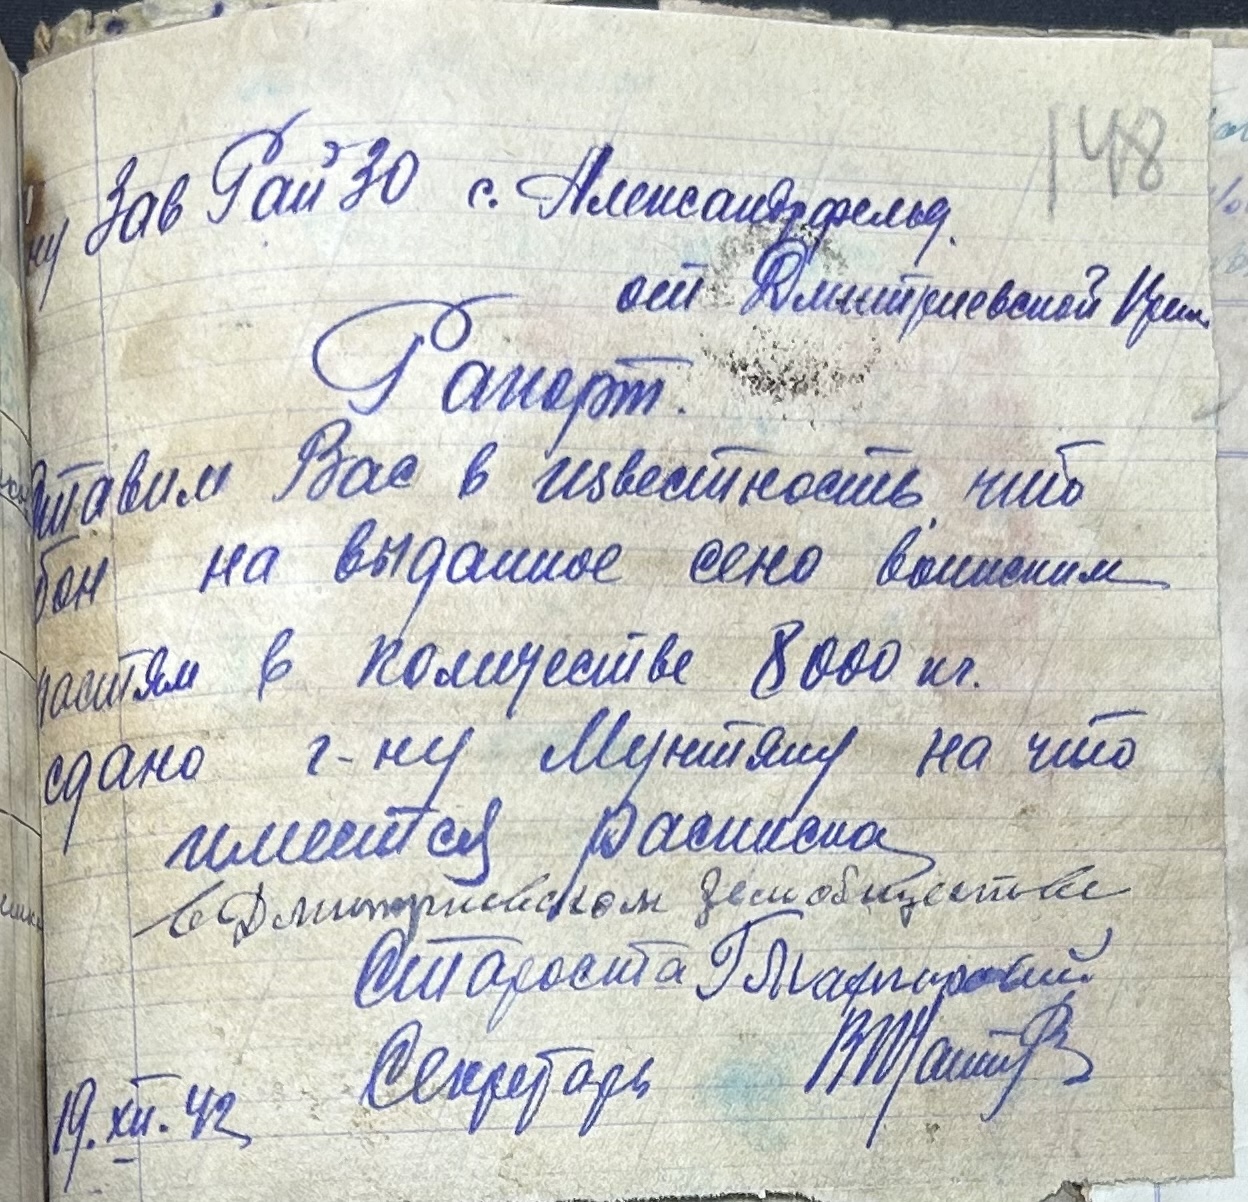 148
ну Зав РайЗО с. Александрфельд.
от Дмитриевской Прим.
Рапорт.
Ставим Вас в известность что
бон на выданное сено воинским
частям в количестве 8000 кг.
сдано г-ну Мунтяну на что
имеится расписка
в Дмитриевском земобществе
Староста
Секретарь
19.XII.42